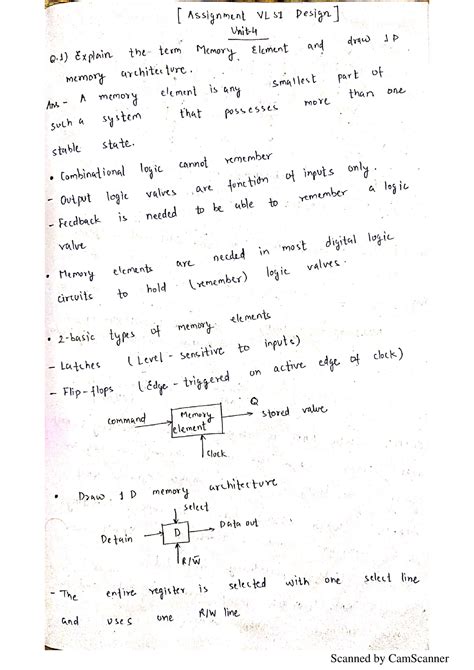 [ Assignment VLSI Design ]
Unit-4
Q.1) Explain the term Memory Element and draw 1D
memory architecture.
Ans - A memory element is any smallest part of
such a system that possesses more than one
stable state.
• Combinational logic cannot remember
- Output logic values are function of inputs only.
- Feedback is needed to be able to remember a logic
value
• Memory elements are needed in most digital logic
circuits to hold (remember) logic values.
• 2-basic types of memory elements
- Latches (Level - sensitive to inputs)
- Flip-flops (Edge - triggered on active edge of clock)
command
Memory
element
Q
stored value
clock
• Draw 1D memory architecture
select
Detain
D
Data out
R/W̅
- The entire register is selected with one select line
and uses one R/W line
Scanned by CamScanner